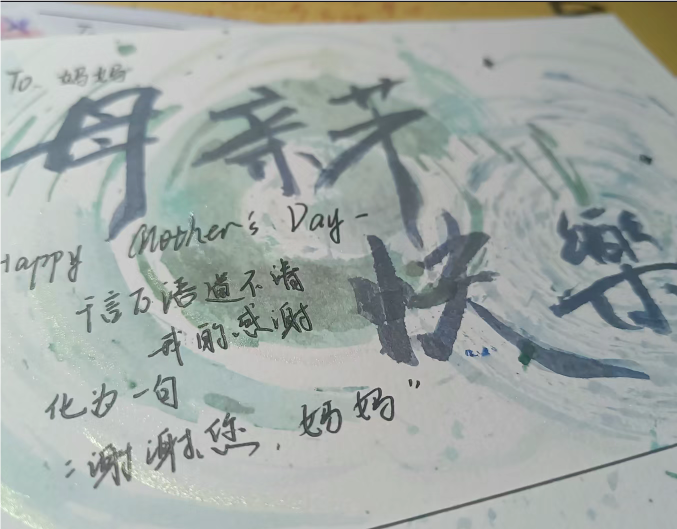 To. 妈妈
母亲节
快樂
Happy Mother's Day
千言万语道不清
我的感谢
化为一句
“谢谢您,妈妈”